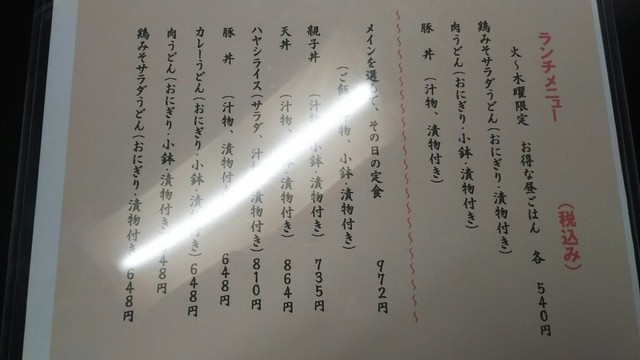 ランチメニュー　（税込み）
火～木曜限定　お得な昼ごはん　各　５４０円
鶏みそサラダうどん（おにぎり・漬物付き）
肉うどん（おにぎり・小鉢・漬物付き）
豚丼　（汁物、漬物付き）
～～～～～～～～～～～～～～～～～～～～
メインを選　、その日の定食　９７２円
（ご飯　物、小鉢、漬物付き）
親子丼　（汁物　小鉢、漬物付き）　７３５円
天丼　（汁物、　漬物付き）　８６４円
ハヤシライス（サラダ、汁　漬物付き）　８１０円
豚　丼　（汁物、漬物付き）　６４８円
カレーうどん（おにぎり・小鉢・漬物付き）６４８円
肉うどん（おにぎり・小鉢・漬物付き）　４８円
鶏みそサラダうどん（おにぎり・漬物付き）６４８円